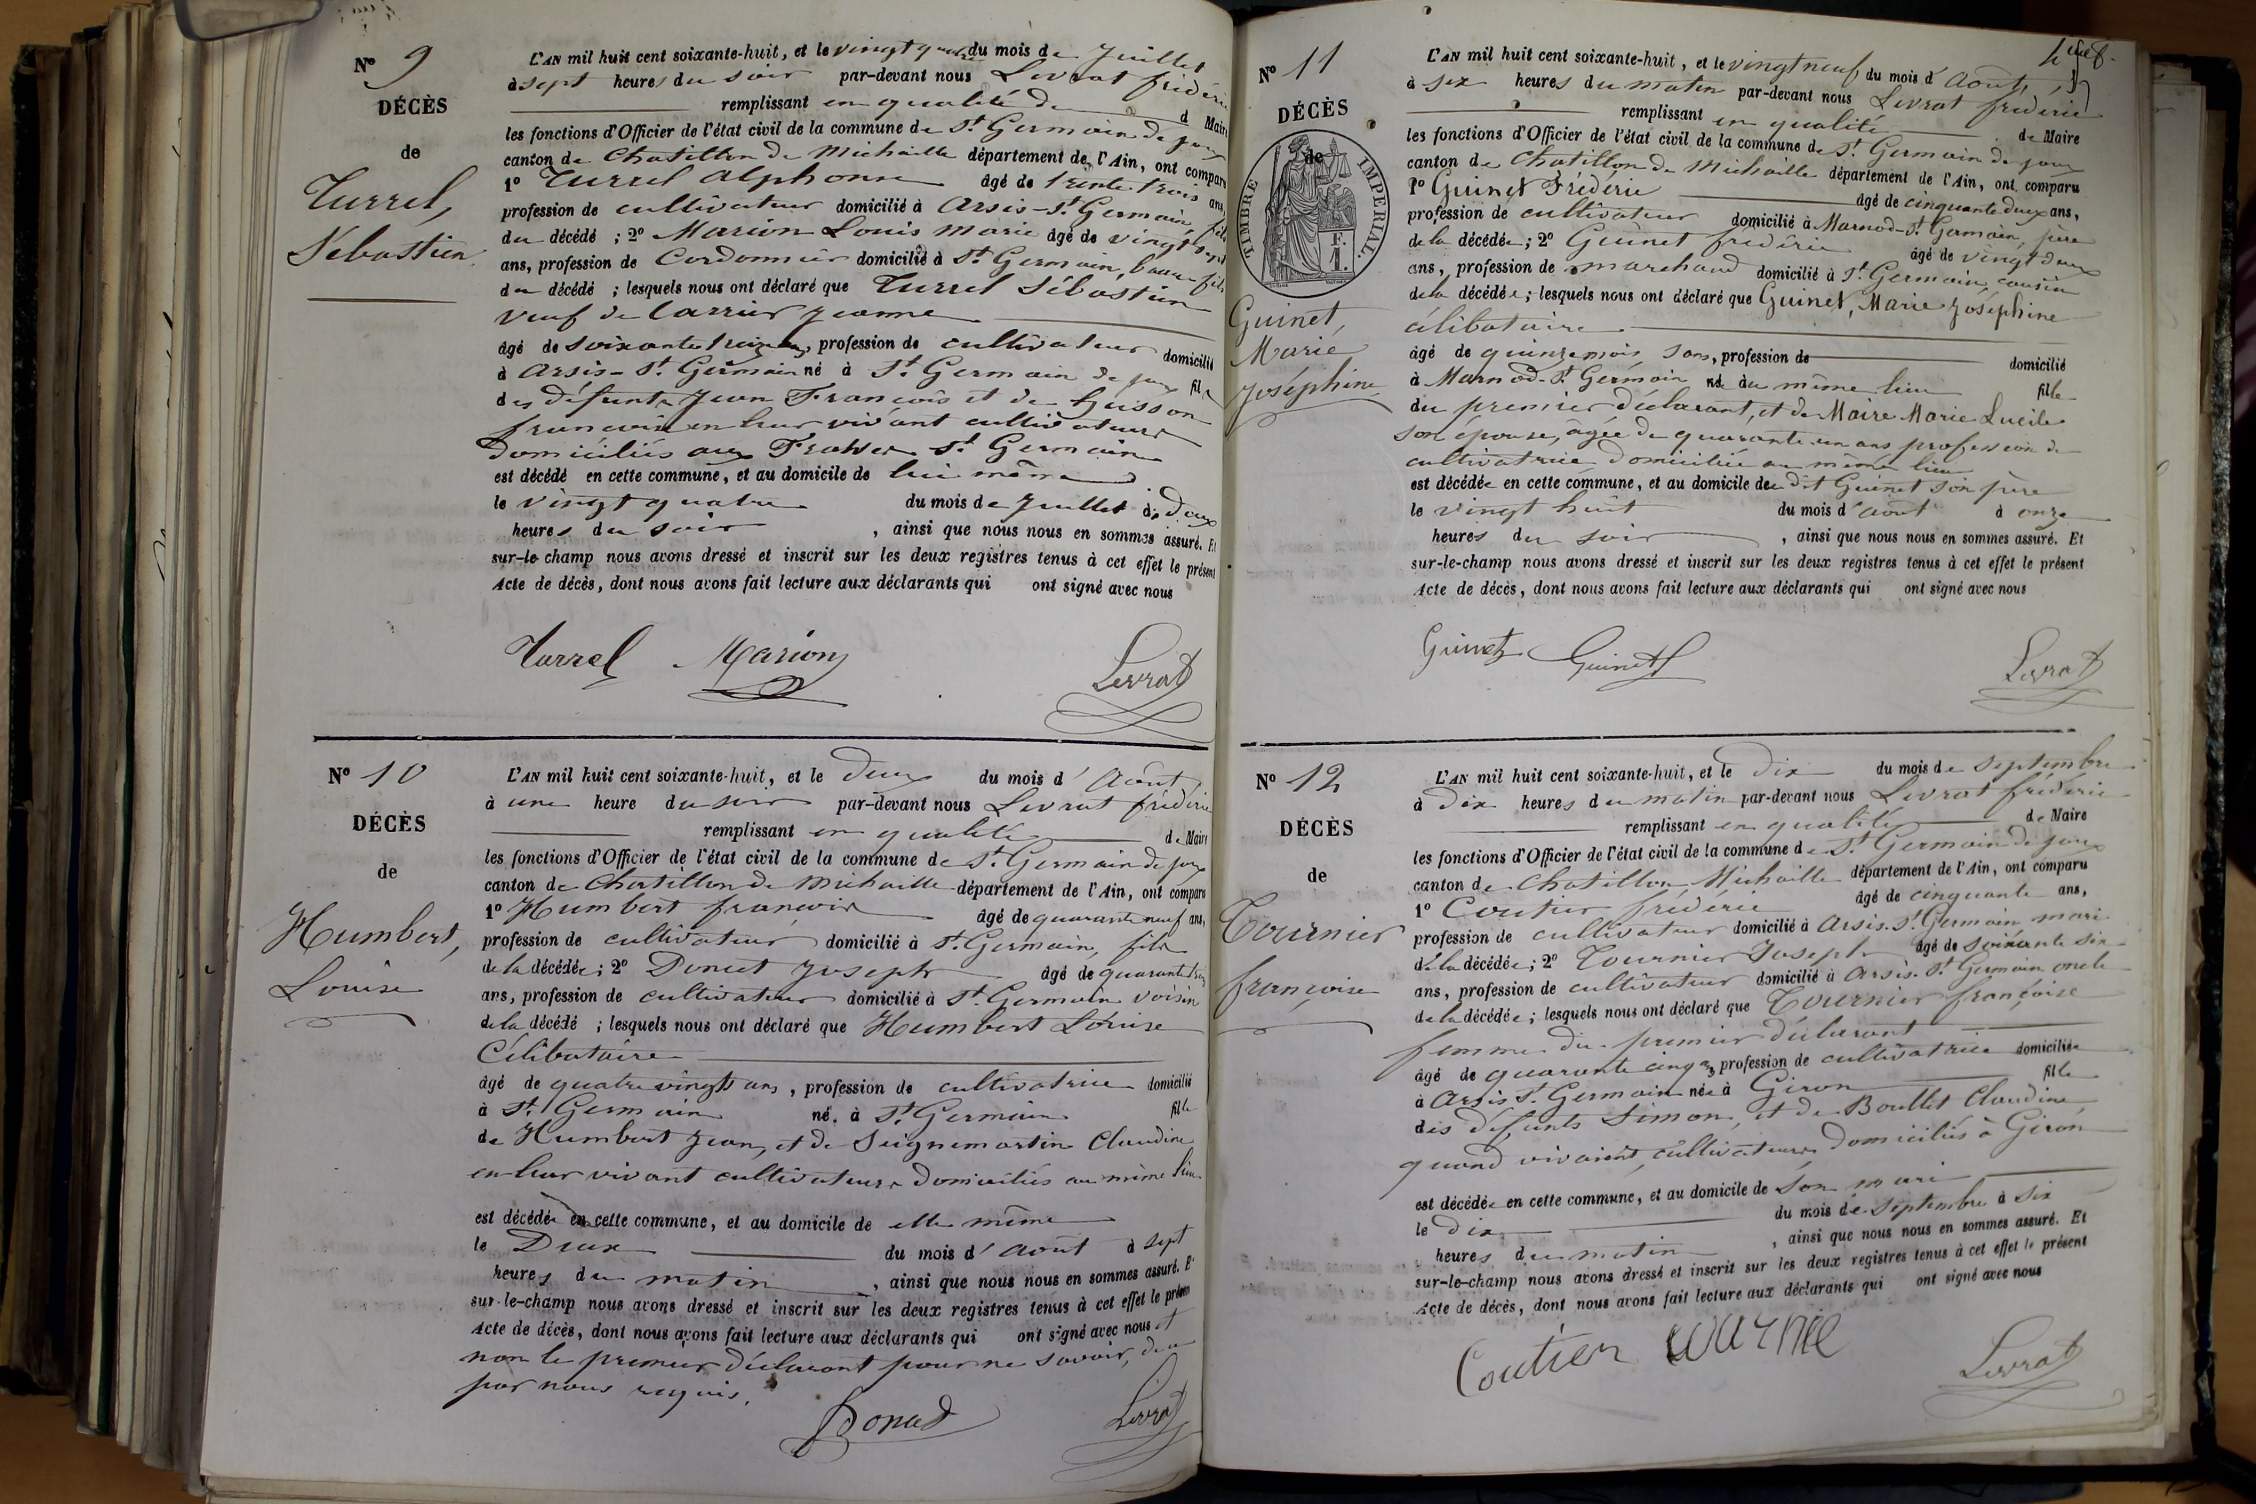 N° 9
DÉCÈS
de
Turrel,
Sébastien
L'AN mil huit cent soixante-huit, et le vingt quatre du mois de Juillet
à sept heures du soir par-devant nous Levrat frédéric
remplissant en qualité de d Maire
les fonctions d'Officier de l'état civil de la commune de St Germain de joux
canton de Chatillon de Michaille département de l'Ain, ont comparu
1° Turrel Alphonse âgé de trente trois ans,
profession de cultivateur domicilié à Arsis-St Germain, fils
du décédé ; 2° Marion Louis Marie âgé de vingt sept
ans, profession de Cordonnier domicilié à St Germain, beau-fils
du décédé ; lesquels nous ont déclaré que Turrel Sébastien
veuf de Carrier Jeanne
âgé de soixante treize ans, profession de cultivateur domicilié
à Arsis-St Germain né à St Germain de joux fils
des défunts Jean François et de Huisson
françoise en leur vivant cultivateurs
domiciliés aux St Germain
est décédé en cette commune, et au domicile de lui même
le vingt quatre du mois de Juillet à deux
heures du soir , ainsi que nous nous en sommes assuré. Et
sur-le champ nous avons dressé et inscrit sur les deux registres tenus à cet effet le présent
Acte de décès, dont nous avons fait lecture aux déclarants qui ont signé avec nous
Turrel Marion Levrat
N° 10
DÉCÈS
de
Humbert,
Louise
L'AN mil huit cent soixante-huit, et le deux du mois d'Août
à une heure du soir par-devant nous Levrat frédéric
remplissant en qualité de Maire
les fonctions d'Officier de l'état civil de la commune de St Germain de joux
canton de Chatillon de Michaille département de l'Ain, ont comparu
1° Humbert françois âgé de quarante neuf ans,
profession de cultivateur domicilié à St Germain, fils
de la décédée ; 2° Donet Joseph âgé de quarante trois
ans, profession de cultivateur domicilié à St Germain voisin
de la décédé ; lesquels nous ont déclaré que Humbert Louise
Célibataire
âgé de quatre vingts ans, profession de cultivatrice domicilié
à St Germain né à St Germain fille
de Humbert Jean, et de Seignemartin Claudine
en leur vivant cultivateurs domiciliés au même lieu
est décédée en cette commune, et au domicile de elle même
le Deux du mois d'Août à sept
heures du matin , ainsi que nous nous en sommes assuré. Et
sur-le-champ nous avons dressé et inscrit sur les deux registres tenus à cet effet le présent
Acte de décès, dont nous avons fait lecture aux déclarants qui ont signé avec nous et
non le premier déclarant pour ne savoir, de ce
par nous requis.
Donet Levrat
N° 11
DÉCÈS
de
TIMBRE IMPÉRIAL
F.
1.
Guinet,
Marie
Joséphine
L'AN mil huit cent soixante-huit, et le vingt neuf du mois d'Août
à six heures du matin par-devant nous Levrat frédéric
remplissant en qualité de Maire
les fonctions d'Officier de l'état civil de la commune de St Germain de joux
canton de Chatillon de Michaille département de l'Ain, ont comparu
1° Guinet Frédéric âgé de cinquante deux ans,
profession de cultivateur domicilié à Marnod-St Germain, père
de la décédée ; 2° Guinet frédéric âgé de vingt deux
ans, profession de marchand domicilié à St Germain, cousin
de la décédée ; lesquels nous ont déclaré que Guinet, Marie Joséphine
célibataire
âgé de quinze mois ans, profession de domicilié
à Marnod-St Germain né au même lieu fille
du premier déclarant, et de Maire Marie Lucile
son épouse, âgée de quarante un ans profession de
cultivatrice domiciliée au même lieu
est décédée en cette commune, et au domicile du dit Guinet son père
le vingt huit du mois d'août à onze
heures du soir , ainsi que nous nous en sommes assuré. Et
sur-le-champ nous avons dressé et inscrit sur les deux registres tenus à cet effet le présent
Acte de décès, dont nous avons fait lecture aux déclarants qui ont signé avec nous
Guinet Guinet Levrat
N° 12
DÉCÈS
de
Tournier
françoise
L'AN mil huit cent soixante-huit, et le dix du mois de Septembre
à dix heures du matin par-devant nous Levrat frédéric
remplissant en qualité de Maire
les fonctions d'Officier de l'état civil de la commune de St Germain de joux
canton de Chatillon Michaille département de l'Ain, ont comparu
1° Coutier frédéric âgé de cinquante ans,
profession de cultivateur domicilié à Arsis-St Germain mari
de la décédée ; 2° Tournier Joseph âgé de soixante six
ans, profession de cultivateur domicilié à Arsis-St Germain oncle
de la décédée ; lesquels nous ont déclaré que Tournier françoise
femme du premier déclarant
âgé de quarante cinq ans, profession de cultivatrice domiciliée
à Arsis St Germain née à Giron fille
des défunts Simon, et de Boullet Claudine
quand vivaient, cultivateurs domiciliés à Giron
est décédée en cette commune, et au domicile de son mari
le dix du mois de Septembre à six
heures du matin , ainsi que nous nous en sommes assuré. Et
sur-le-champ nous avons dressé et inscrit sur les deux registres tenus à cet effet le présent
Acte de décès, dont nous avons fait lecture aux déclarants qui ont signé avec nous
Coutier tournie Levrat